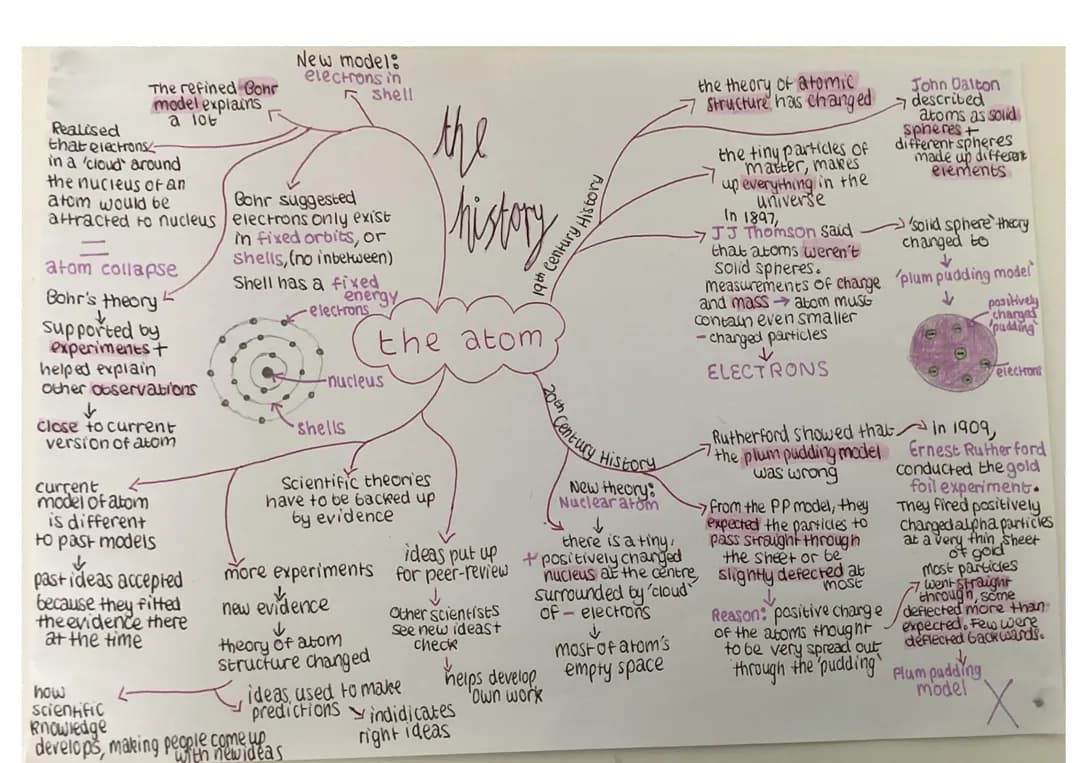 the
history
the atom
New model:
electrons in
shell
The refined Bohr
model explains
a lot
Realised
that electrons
in a 'cloud' around
the nucleus of an
atom would be
attracted to nucleus
=
atom collapse
Bohr suggested
electrons only exist
in fixed orbits, or
shells, (no inbetween)
Shell has a fixed
energy
Bohr's theory
supported by
experiments +
helped explain
other observations
close to current
version of atom
electrons
nucleus
shells
19th Century History
the theory of atomic
structure has changed
John Dalton
described
atoms as solid
spheres +
different spheres
made up different
elements
the tiny particles of
matter, makes
up everything in the
universe
In 1897,
JJ Thomson said
that atoms weren't
solid spheres.
measurements of charge
and mass → atom must
contain even smaller
- charged particles
ELECTRONS
'solid sphere' theory
changed to
'plum pudding model'
positively
charged
'pudding'
electrons
20th Century History
Rutherford showed that
the plum pudding model
was wrong
in 1909,
Ernest Rutherford
conducted the gold
foil experiment.
They fired positively
charged alpha particles
at a very thin sheet
of gold
most particles
went straight
through, some
deflected more than
expected. Few were
deflected backwards.
Plum pudding
model X
From the PP model, they
expected the particles to
pass straight through
the sheet or be
slightly defected at
most
Reason: positive charge
of the atoms thought
to be very spread out
through the 'pudding'
New theory:
Nuclear atom
there is a tiny,
+ positively charged
nucleus at the centre,
surrounded by 'cloud'
of - electrons
most of atom's
empty space
ideas put up
for peer-review
Other scientists
see new ideas +
check
helps develop
own work
Scientific theories
have to be backed up
by evidence
more experiments
new evidence
theory of atom
structure changed
ideas used to make
predictions ↘ indidicates
right ideas
how
scientific
knowledge
develops, making people come up
with new ideas
current
model of atom
is different
to past models
past ideas accepted
because they fitted
the evidence there
at the time